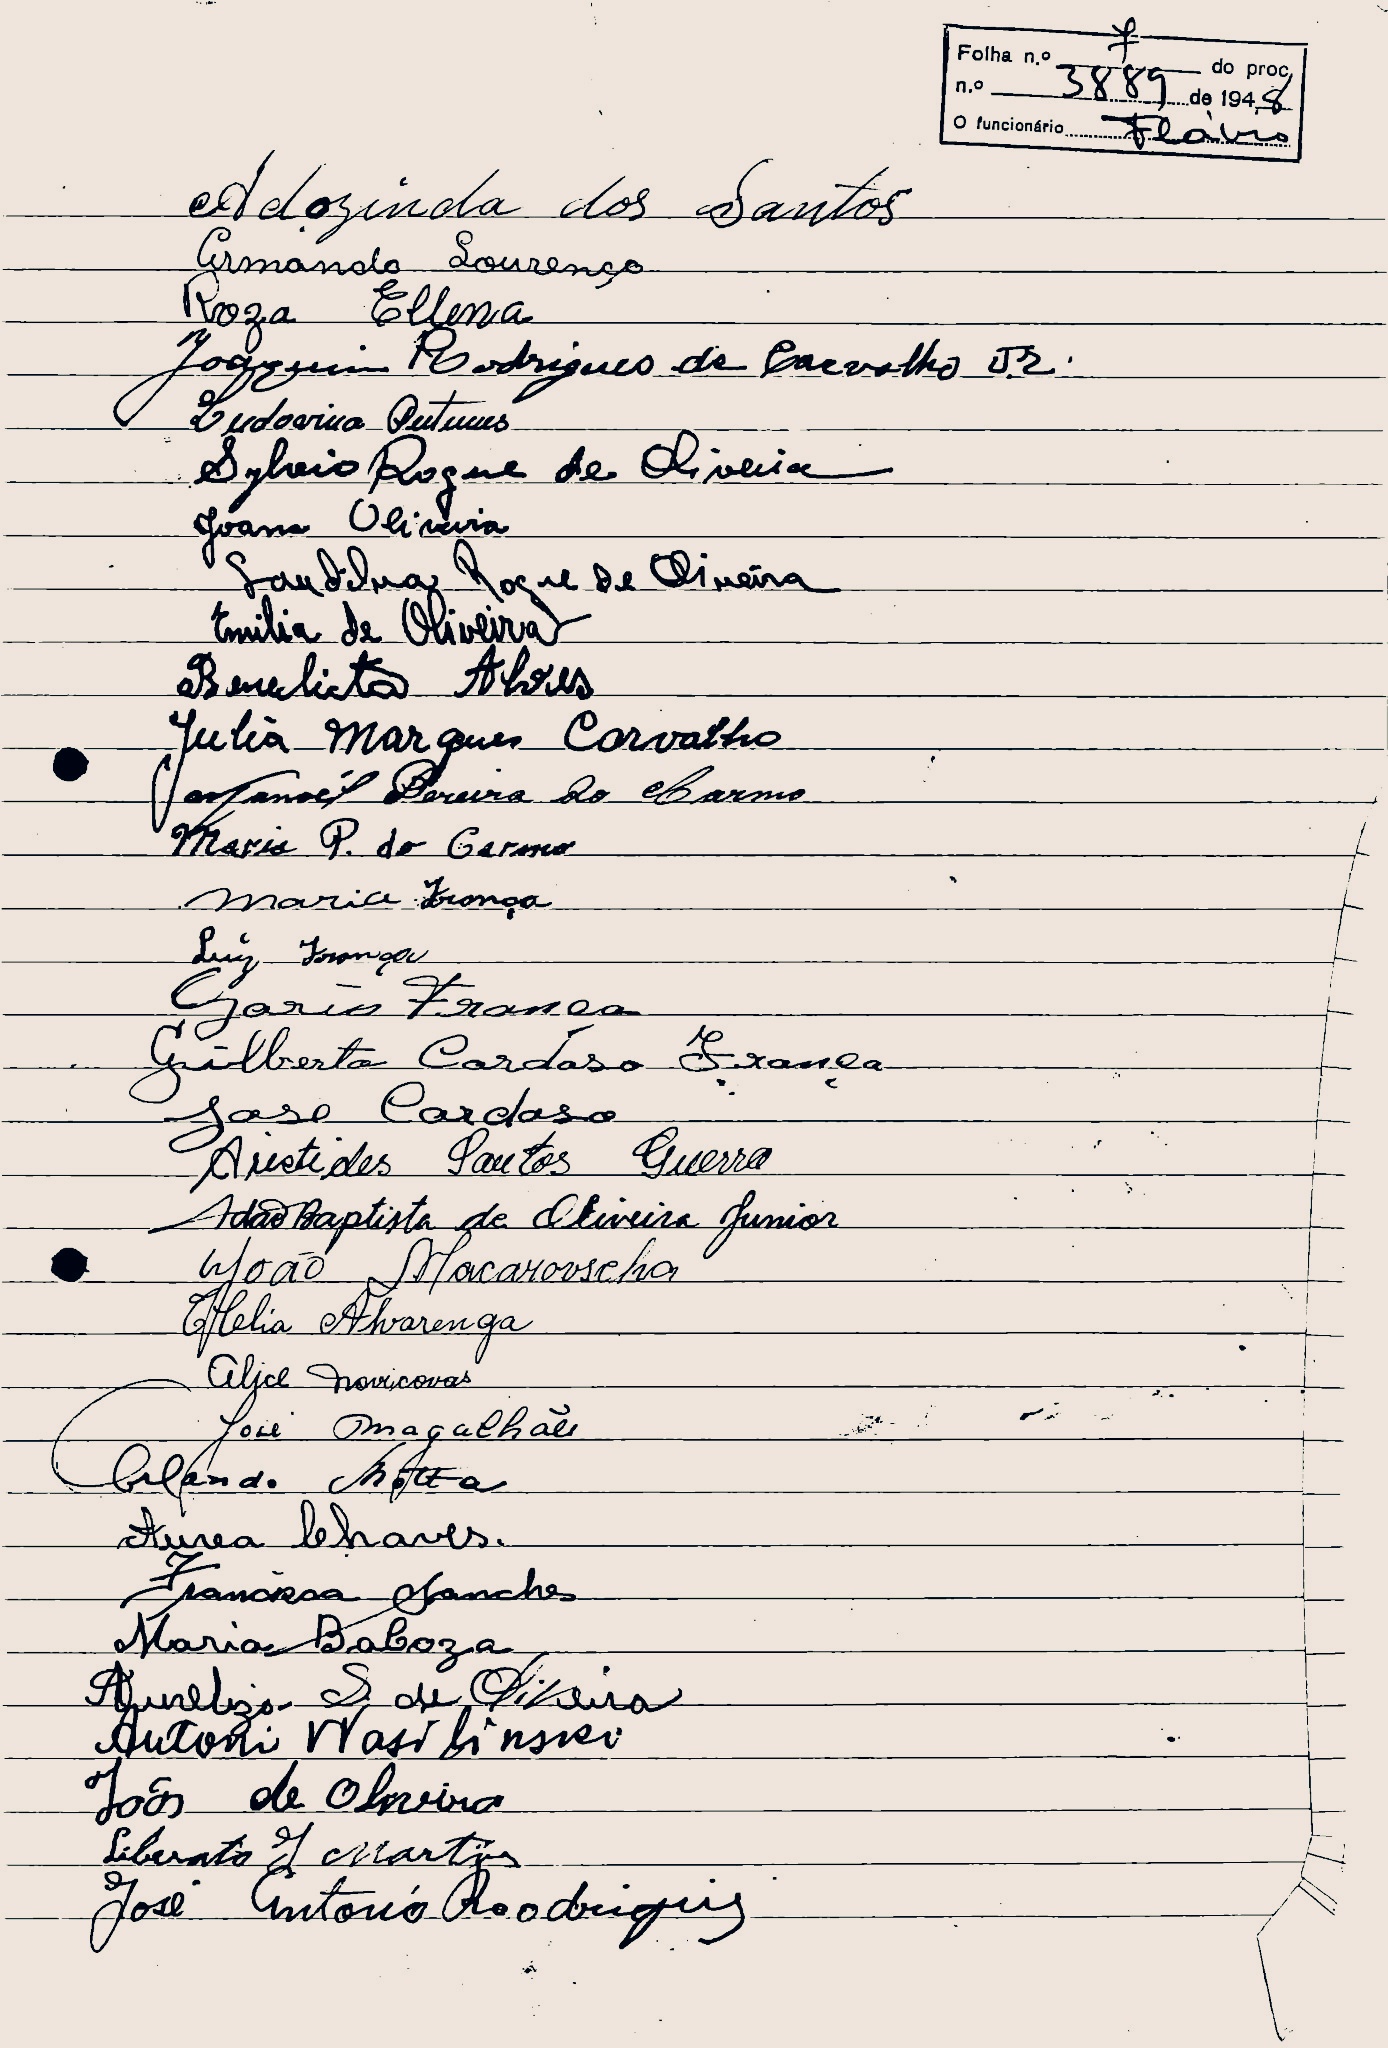 Folha n.º 7 do proc.
n.º 3889 de 1948
O funcionário Flávio
Adozinda dos Santos
Armando Lourenço
Roza Ellena
Joaquim Rodrigues de Carvalho Jr.
Ludovica
Sylvio Roque de Oliveira
Joana Oliveira
Roque de Oliveira
Emilia de Oliveira
Benedicto Alves
Julia Marques Carvalho
Manoel Pereira do Carmo
Maria P. do Carmo
Maria França
Luiz França
França
Gilberto Cardoso França
Jose Cardoso
Aristides Santos Guerra
Adão Baptista de Oliveira Junior
João Macarovscha
Helia Alvarenga
Alice Novicovas
José Magalhães
Orlando Motta
Aurea Chaves.
Francisca Sanches
Maria Baboza
S. de Oliveira
Antoni Wasilinski
João de Oliveira
Liberato J Martins
José Antonio Roodriguis